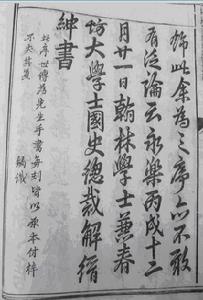 飾此余為之序亦不敢
有泛論云永樂丙戌十二
月廿一日翰林學士兼春
坊大學士國史總裁解縉
紳書
此序世傳為先生手書每刻皆以原本付梓
不失其真
謹識